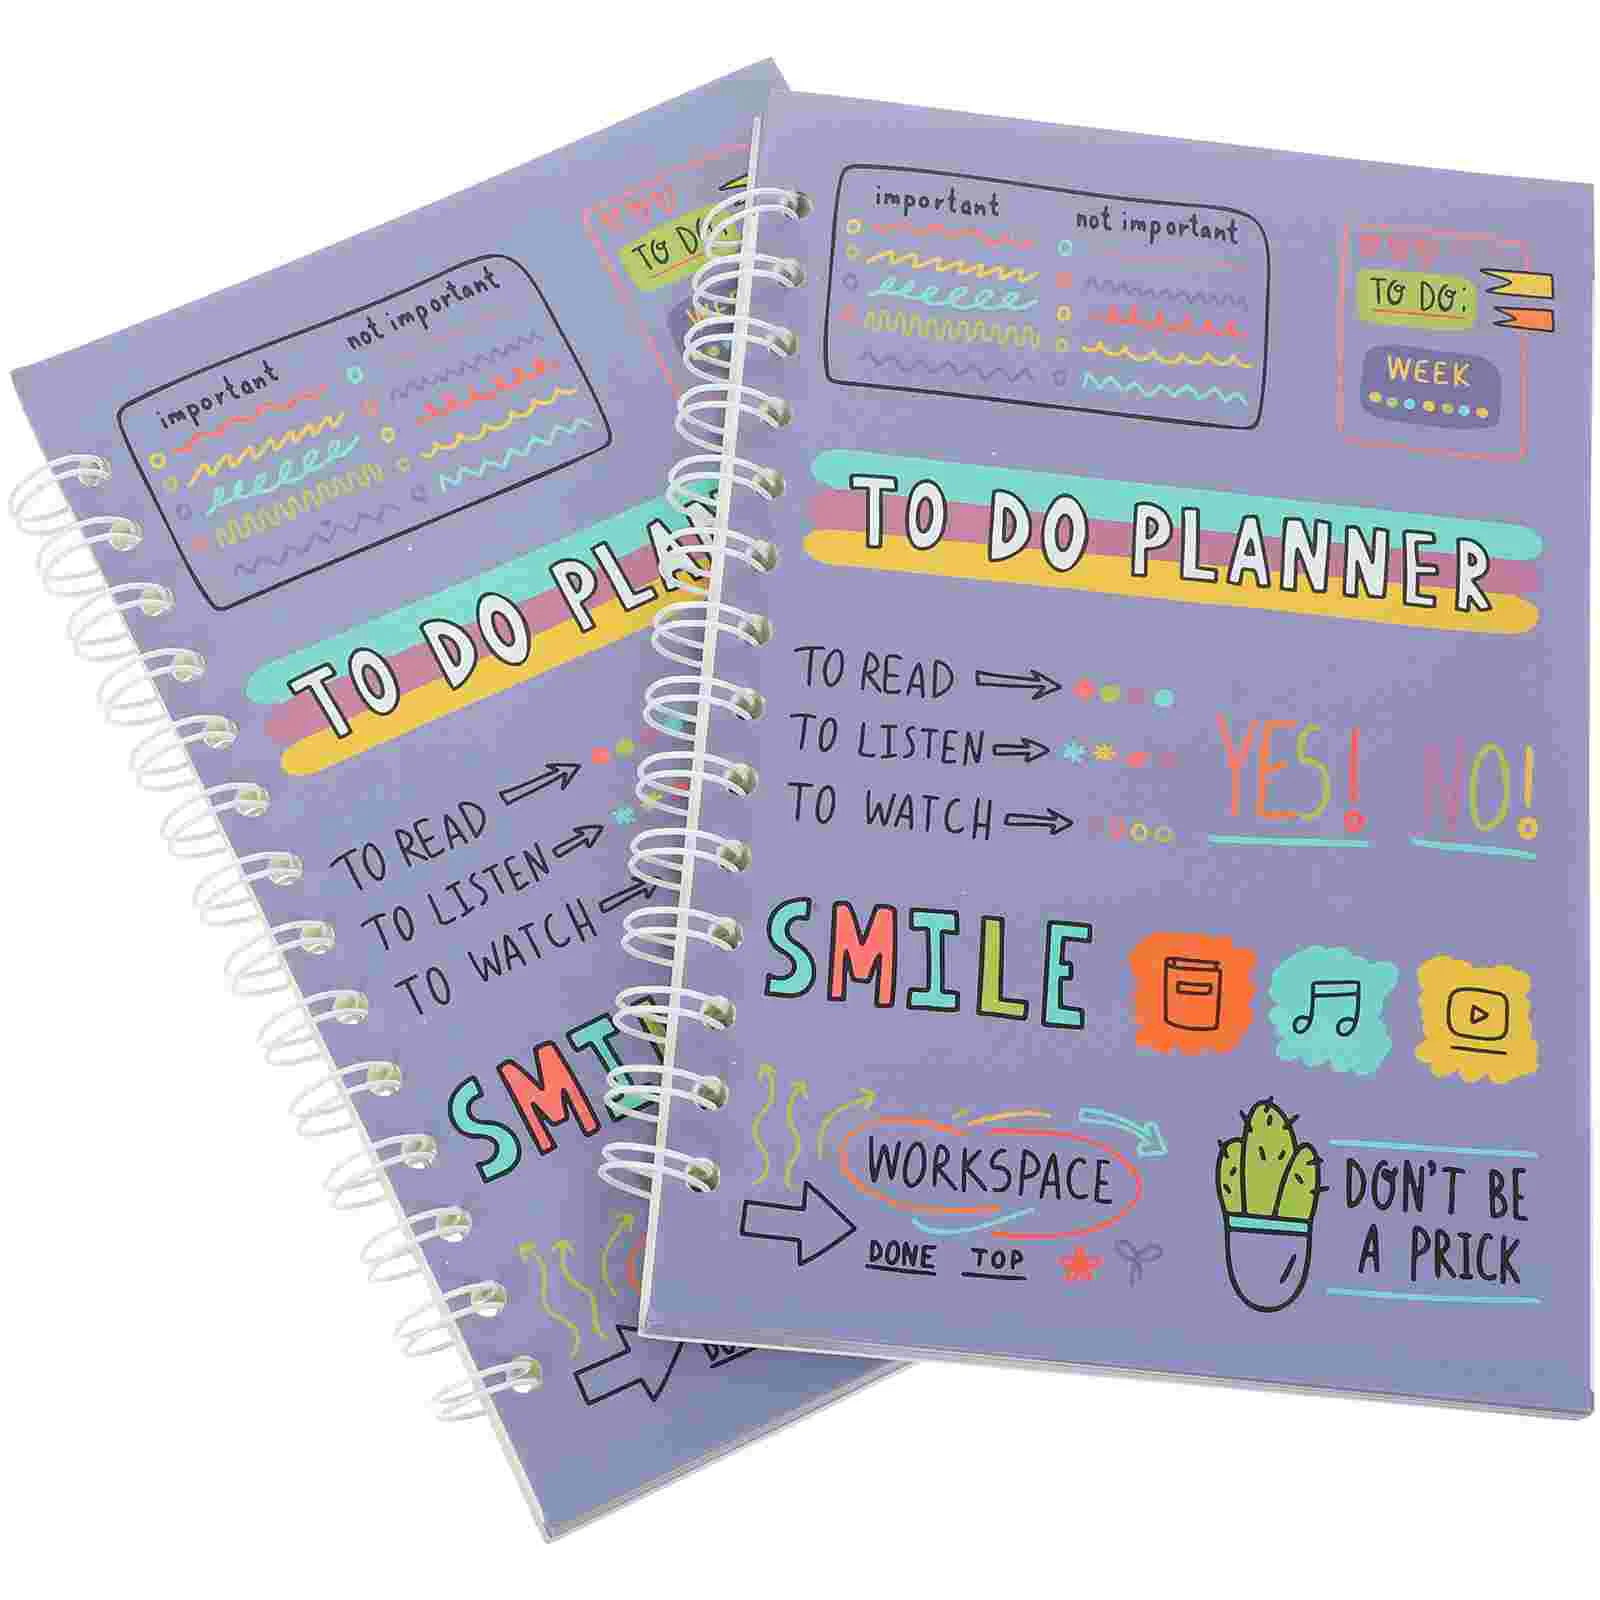 important
not important
TO DO:
WEEK
TO DO PLAN
TO READ
TO LISTEN
TO WATCH
SMIL
important
not important
TO DO:
WEEK
TO DO PLANNER
TO READ
TO LISTEN
TO WATCH
YES! NO!
SMILE
WORKSPACE
DONE TOP
DON'T BE
A PRICK